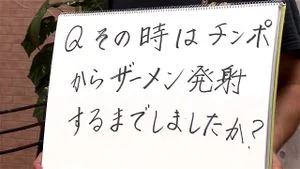 Qその時はチンポ
からザーメン発射
するまでしましたか?